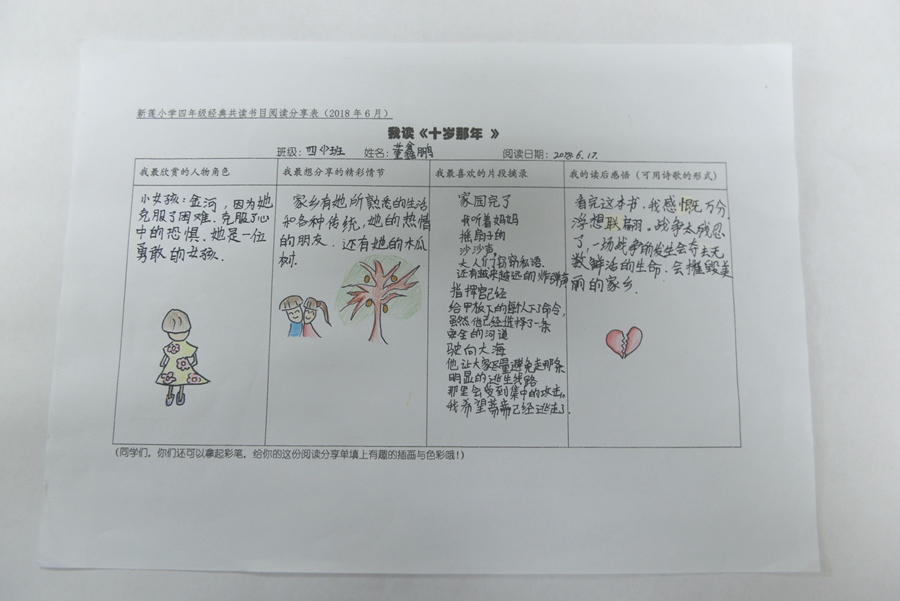 新莲小学四年级经典共读书目阅读分享表（2018年6月）
我读《十岁那年 》
班级：四中班 姓名：董鑫鹏 阅读日期：2018.6.17.
我最欣赏的人物角色
小女孩：金河，因为她
克服了困难．克服了心
中的恐惧．她是一位
勇敢的女孩．
我最想分享的精彩情节
家乡有她所熟悉的生活
和各种传统，她的热情
的朋友．还有她的木瓜
树．
我最喜欢的片段摘录
家园完了
我听着妈妈
摇扇子的
沙沙声，
大人们窃窃私语．
还有越来越远的炸弹声
指挥官已经
给甲板下的每个人下了命令，
虽然他已经选择了一条
安全的河道
驶向大海
他让大家尽量避免走那条
明显的逃生线路
那里会受到集中的攻击。
我希望 已经逃走了．
我的读后感悟（可用诗歌的形式）
看完这本书，我感慨万分．
浮想联翩，战争太残忍
了，一场战争的发生会夺去无
数鲜活的生命．会摧毁美
丽的家乡．
(同学们，你们还可以拿起彩笔，给你的这份阅读分享单填上有趣的插画与色彩哦!)